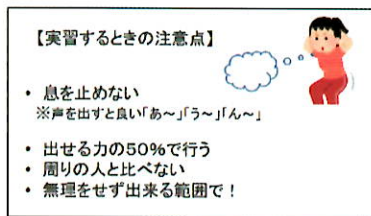 【実習するときの注意点】
• 息を止めない
※声を出すと良い「あ～」「う～」「ん～」
• 出せる力の50%で行う
• 周りの人と比べない
• 無理をせず出来る範囲で！